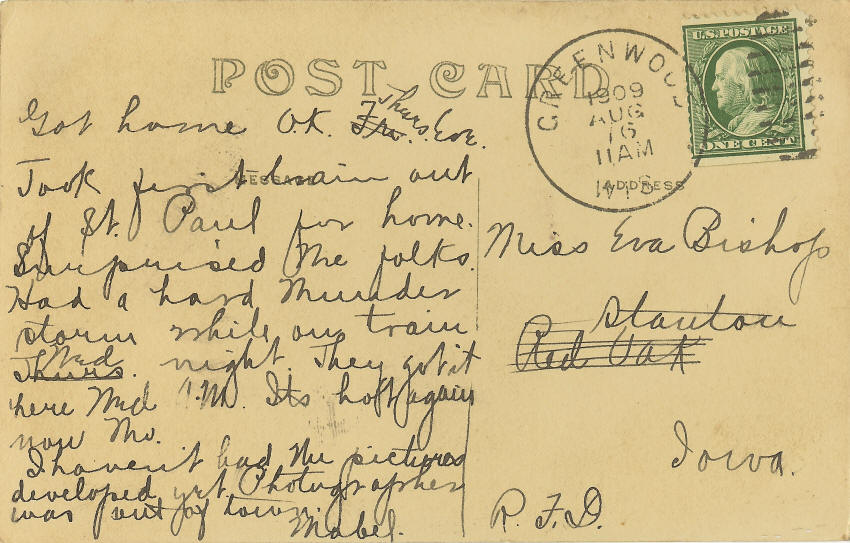 POST CARD
GREENWOOD
1909
AUG
16
11AM
WIS
U.S.POSTAGE
ONE CENT
MESSAGE
ADDRESS
Got home O.K. Fri. Thurs. Eve.
Took first train out
of St. Paul for home.
Surprised the folks.
Had a hard thunder
storm while on train
Thurs. Wed night. They got it
here Wed A.M. Its hot again
now tho.
I haven't had the pictures
developed yet. Photographer
was out of town.
Mabel.
Miss Eva Bishop
Stanton
Red Oak
Iowa.
R. F. D.